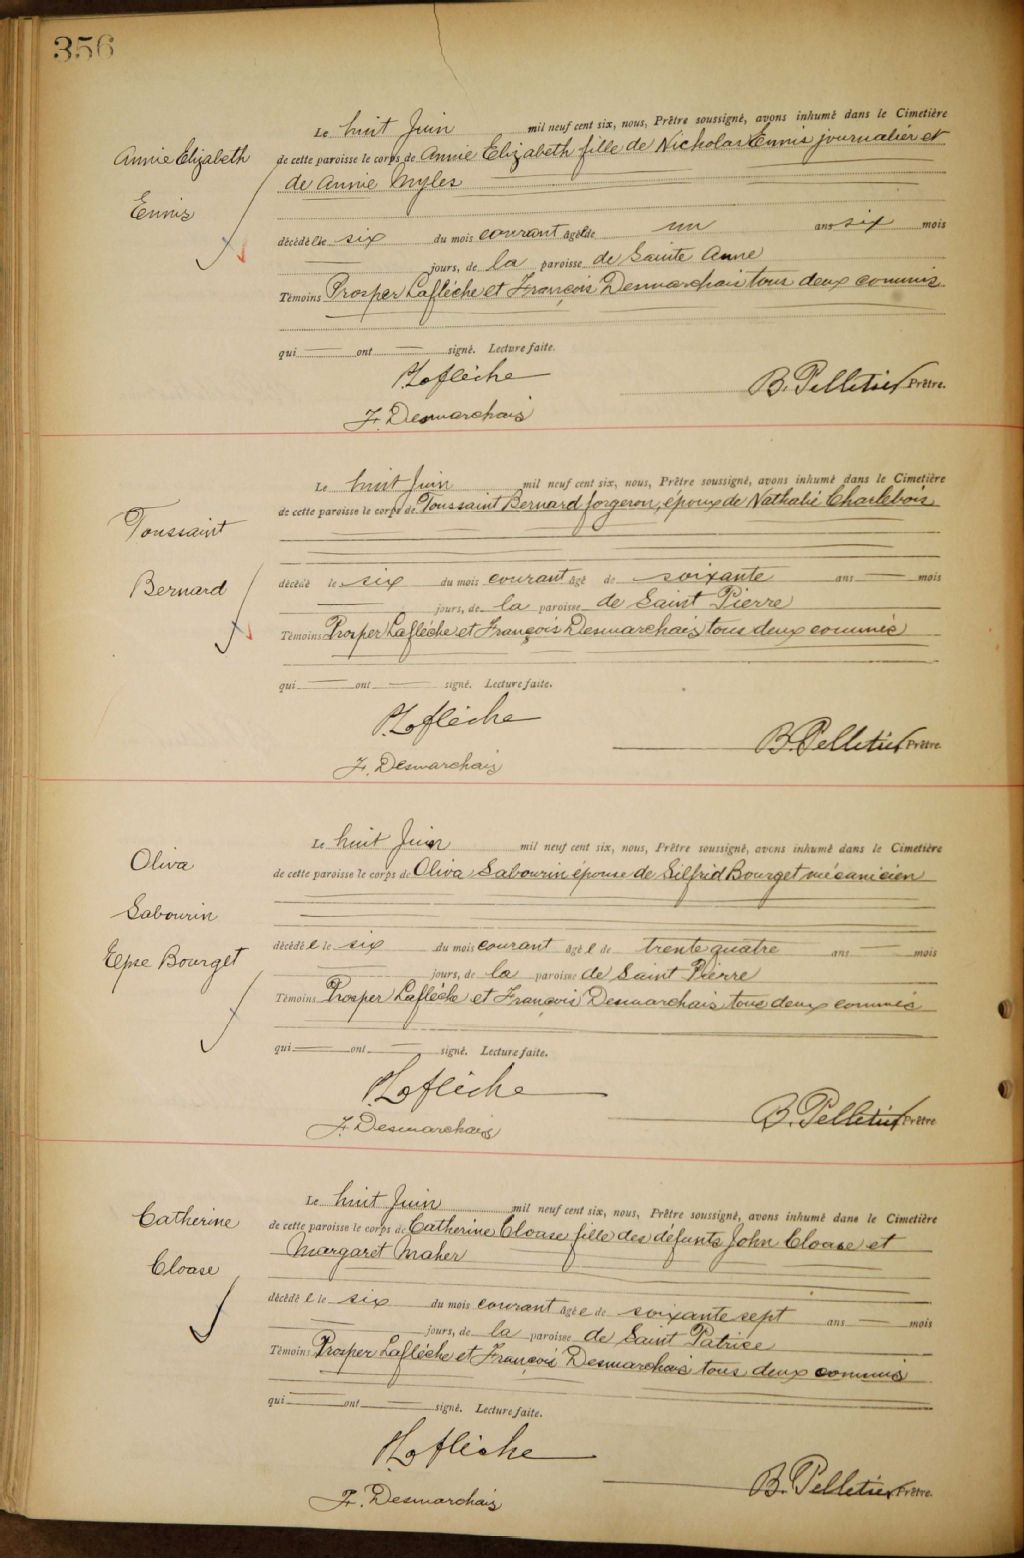 356
Le huit Juin mil neuf cent six, nous, Prêtre soussigné, avons inhumé dans le Cimetière
Annie Elizabeth
de cette paroisse le corps de Annie Elizabeth fille de Nicholas Ennis journalier et
de Annie Myles
Ennis
décédée le six du mois courant âgée de un ans six mois
jours, de la paroisse de Sainte Anne
Témoins Prosper Laflèche et François Desmarchais tous deux commis
qui ont signé. Lecture faite.
P. Laflèche
B. Pelletier Prêtre.
F. Desmarchais
Le huit Juin mil neuf cent six, nous, Prêtre soussigné, avons inhumé dans le Cimetière
de cette paroisse le corps de Toussaint Bernard forgeron, époux de Nathalie Charlebois
Toussaint
Bernard
décédé le six du mois courant âgé de soixante ans mois
jours, de la paroisse de Saint Pierre
Témoins Prosper Laflèche et François Desmarchais tous deux commis
qui ont signé. Lecture faite.
P. Laflèche
B. Pelletier Prêtre.
F. Desmarchais
Le huit Juin mil neuf cent six, nous, Prêtre soussigné, avons inhumé dans le Cimetière
Oliva
de cette paroisse le corps de Oliva Sabourin épouse de Silfrid Bourget mécanicien
Sabourin
Epse Bourget
décédée le six du mois courant âgée de trente quatre ans mois
jours, de la paroisse de Saint Pierre
Témoins Prosper Laflèche et François Desmarchais tous deux commis
qui ont signé. Lecture faite.
P. Laflèche
B. Pelletier Prêtre
F. Desmarchais
Le huit Juin mil neuf cent six, nous, Prêtre soussigné, avons inhumé dans le Cimetière
Catherine
de cette paroisse le corps de Catherine Cloase fille des défunts John Cloase et
Margaret Maher
Cloase
décédée le six du mois courant âgée de soixante sept ans mois
jours, de la paroisse de Saint Patrice
Témoins Prosper Laflèche et François Desmarchais tous deux commis
qui ont signé. Lecture faite.
P. Laflèche
B. Pelletier Prêtre.
F. Desmarchais